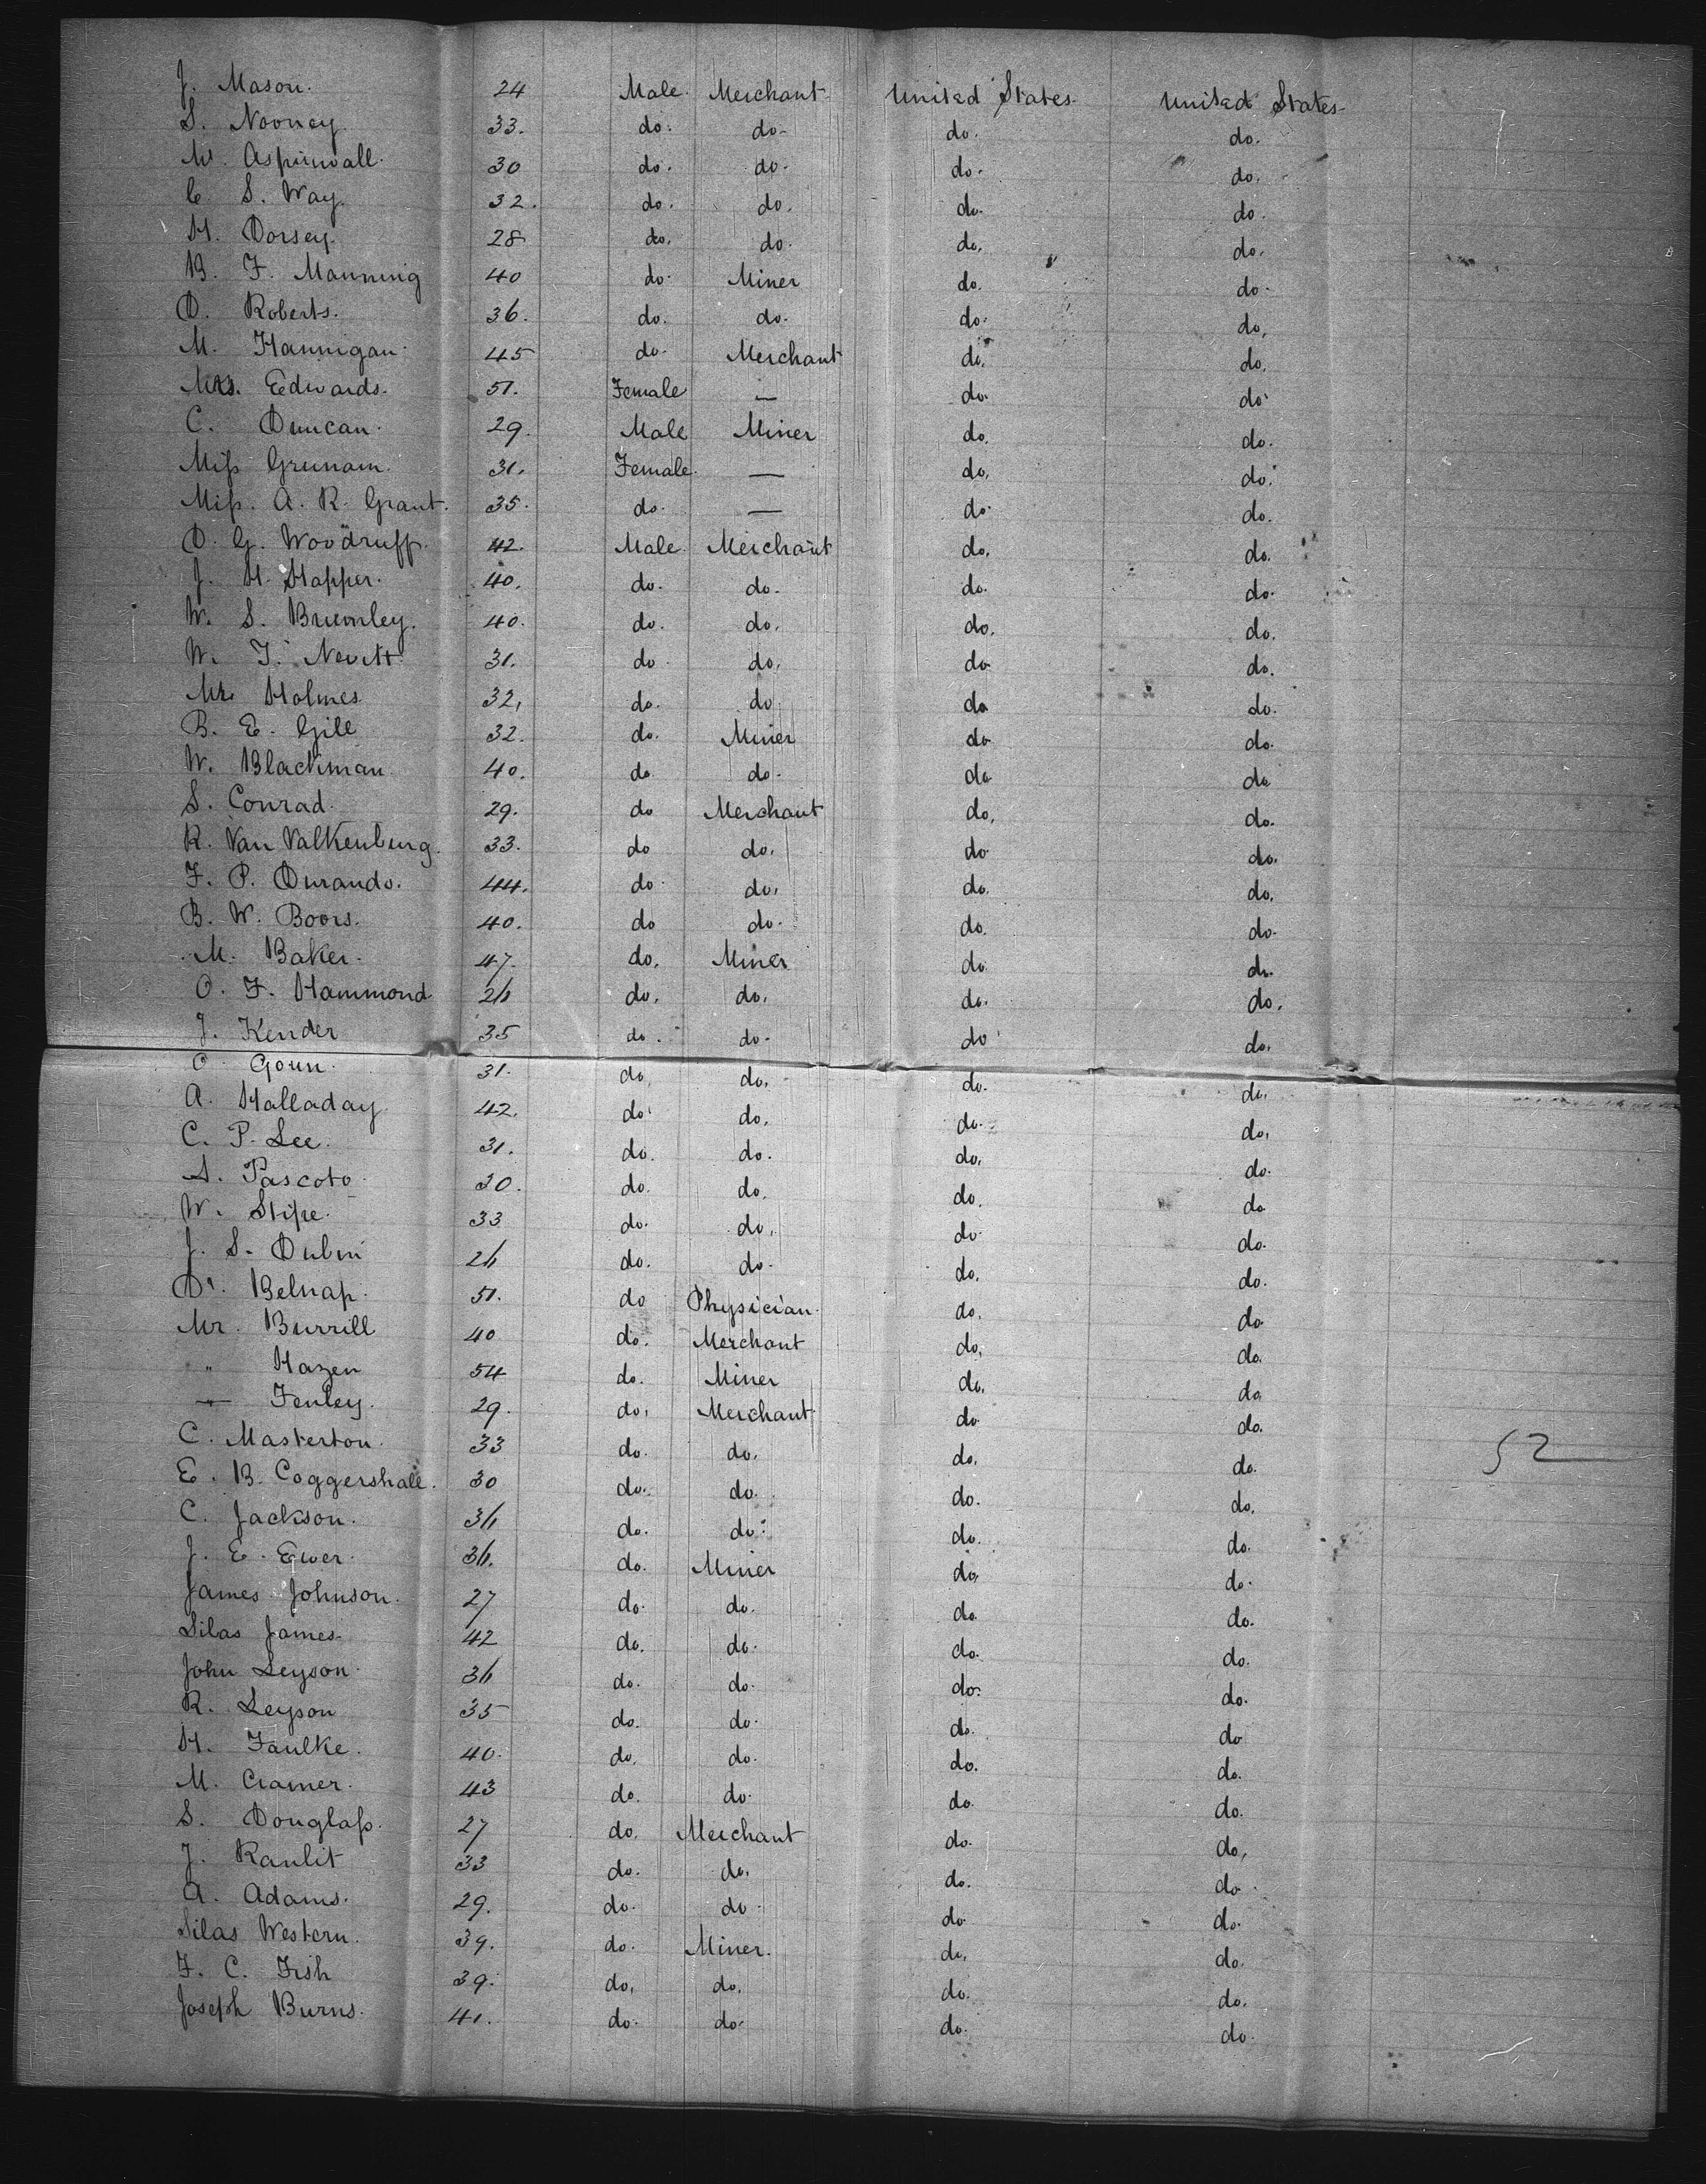 J. Mason. 24 Male. Merchant. United States. United States.
S. Nooney. 33. do. do. do. do.
W. Aspinwall. 30 do. do. do. do.
C. S. Way. 32. do. do. do. do.
H. Dorsey. 28 do. do. do. do.
B. F. Manning 40 do. Miner do. do.
D. Roberts. 36. do. do. do. do.
M. Hannigan. 45 do. Merchant do. do.
Mrs. Edwards. 51. Female — do. do.
C. Duncan. 29. Male Miner do. do.
Miss 31. Female. — do. do.
Miss. A. R. Grant. 35. do. — do. do.
D. G. Woodruff. 42. Male. Merchant do. do.
J. H. Happer. 40. do. do. do. do.
W. S. Brumley. 40. do. do. do. do.
W. T. Nevitt. 31. do do. do do.
Mr. Holmes 32. do. do. do do.
B. E. Gill 32. do. Miner do do.
W. Blackman. 40. do do. do do
S. Conrad. 29. do Merchant do. do.
R. Van Valkenburg. 33. do do. do do.
F. P. Durando. 44. do do. do. do.
B. W. Boors. 40. do do. do. do.
M. Baker. 47. do. Miner do. do.
O. F. Hammond 26 do. do. do. do.
J. Kender 35 do. do. do do.
31. do. do. do. do.
A. Halladay. 42. do. do. do. do.
C. P. Lee. 31. do. do. do. do.
Pascoto. 30. do. do. do. do
W. Stipe. 33 do. do. do. do.
J. S. Dubin 26 do. do. do. do.
Dr. Belnap. 51. do Physician. do. do
Mr. Burrill 40 do. Merchant do. do.
" Hazen 54 do. Miner do. do.
" Fenley. 29. do. Merchant do. do.
C. Masterton. 33 do. do. do. do.
E. B. Coggershall. 30 do. do. do. do.
C. Jackson. 36 do. do. do. do.
J. E. Ewer. 36. do. Miner do. do.
James Johnson. 27 do. do. do. do.
Silas James. 42 do. do. do. do.
John Leyson. 36 do. do. do. do.
R. Leyson 35 do. do. do. do
H. Faulke. 40. do. do. do. do.
M. Cramer. 43 do. do. do. do.
S. Douglass. 27 do. Merchant do. do.
J. Raulit 33 do. do. do. do.
A. Adams. 29. do. do. do. do.
Silas Western. 39. do. Miner. do. do.
F. C. Fish 39. do. do. do. do.
Joseph Burns. 41. do. do. do. do.
52